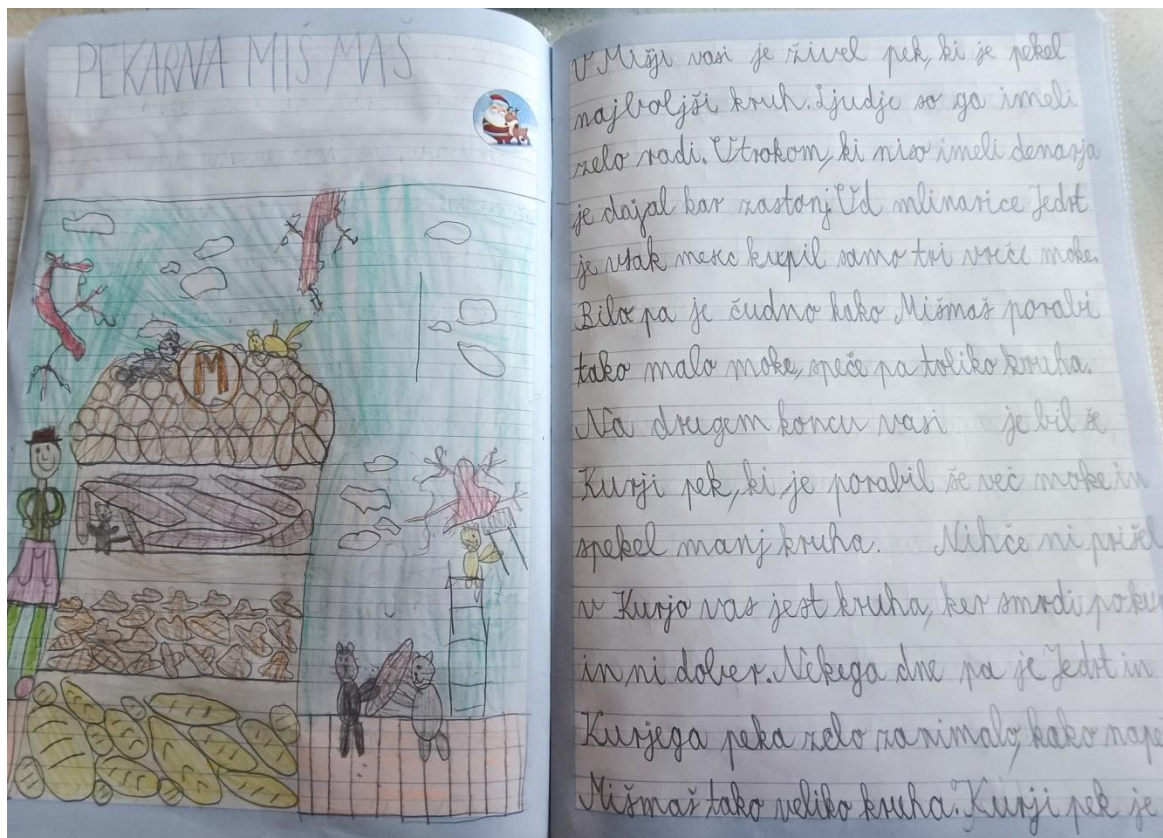 PEKARNA MIŠ MAŠ
M
V Mišji vasi je živel pek, ki je pekel
najboljši kruh. Ljudje so ga imeli
zelo radi. Otrokom, ki niso imeli denarja
je dajal kar zastonj. Od mlinarice Jedrt
je vsak mesc kupil samo tri vreče moke.
Bilo pa je čudno kako Mišmaš porabi
tako malo moke, speče pa toliko kruha.
Na drugem koncu vasi je bil še
Kurji pek, ki je porabil še več moke in
spekel manj kruha. Nihče ni prišel
v Kurjo vas jest kruha, ker smrdi po
in ni dober. Nekega dne pa je Jedrt in
Kurjega peka zelo zanimalo, kako
Mišmaš tako veliko kruha. Kurji pek je